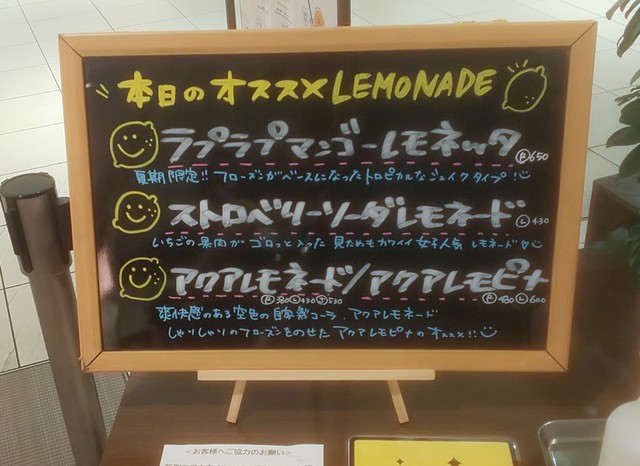 本日のオススメ LEMONADE
ラプラプマンゴーレモネッタ Ⓡ650
夏期限定!! フローズンがベースになったトロピカルなシェイクタイプ!
ストロベリーソーダレモネード Ⓛ430
いちごの果肉がゴロっと入った 見ためもカワイイ 女子人気 レモネード♡
アクアレモネード/アクアレモピナ
Ⓡ380 Ⓛ430 Ⓙ530 Ⓡ480 Ⓛ600
爽快感のある空色の自家製コーラ、アクアレモネード
しゃりしゃりのフローズンをのせた アクアレモピナのオススメ!!
<お客様へご協力のお願い>